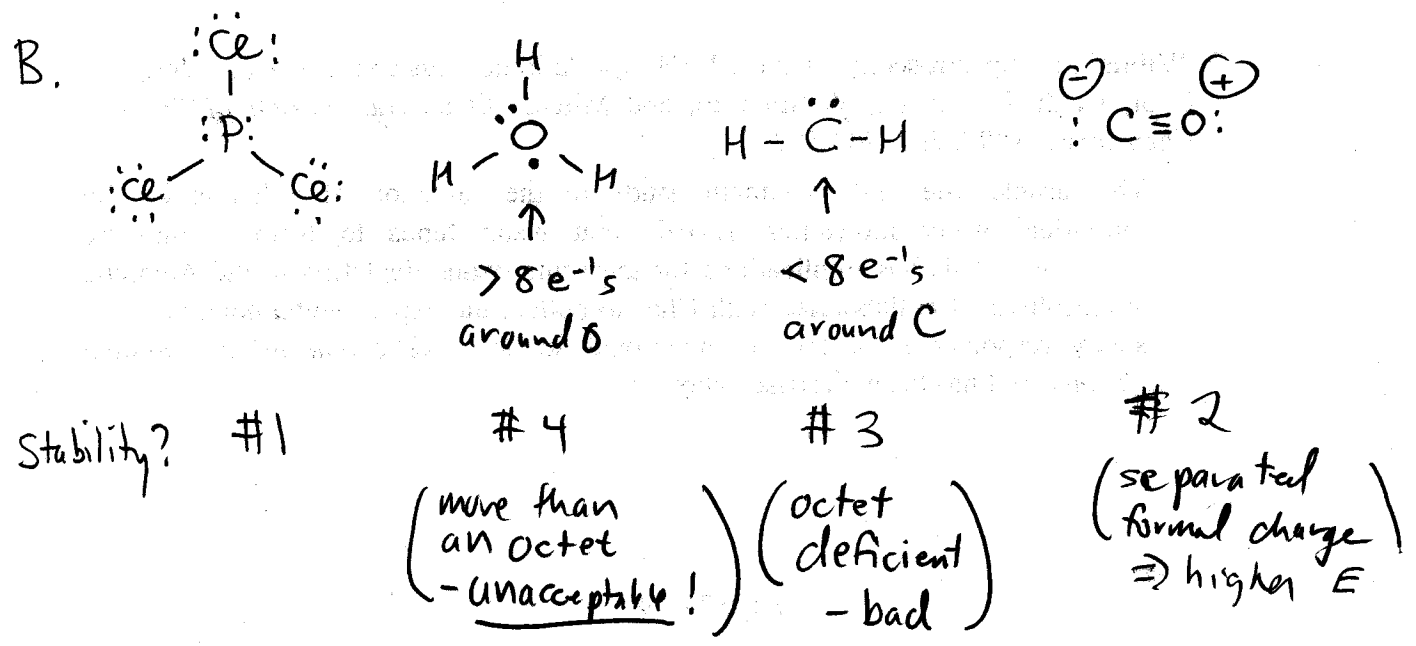 B.
:Cl:
:P:
:Cl Cl:
H
O
H H
H - C - H
⊖ ⊕
:C≡O:
↑ ↑
> 8 e⁻'s
around O
< 8 e⁻'s
around C
Stability? #1 #4 #3 #2
(more than
an octet
- unacceptable!)
(octet
deficient
- bad)
(separated
formal charge
⇒ higher E)